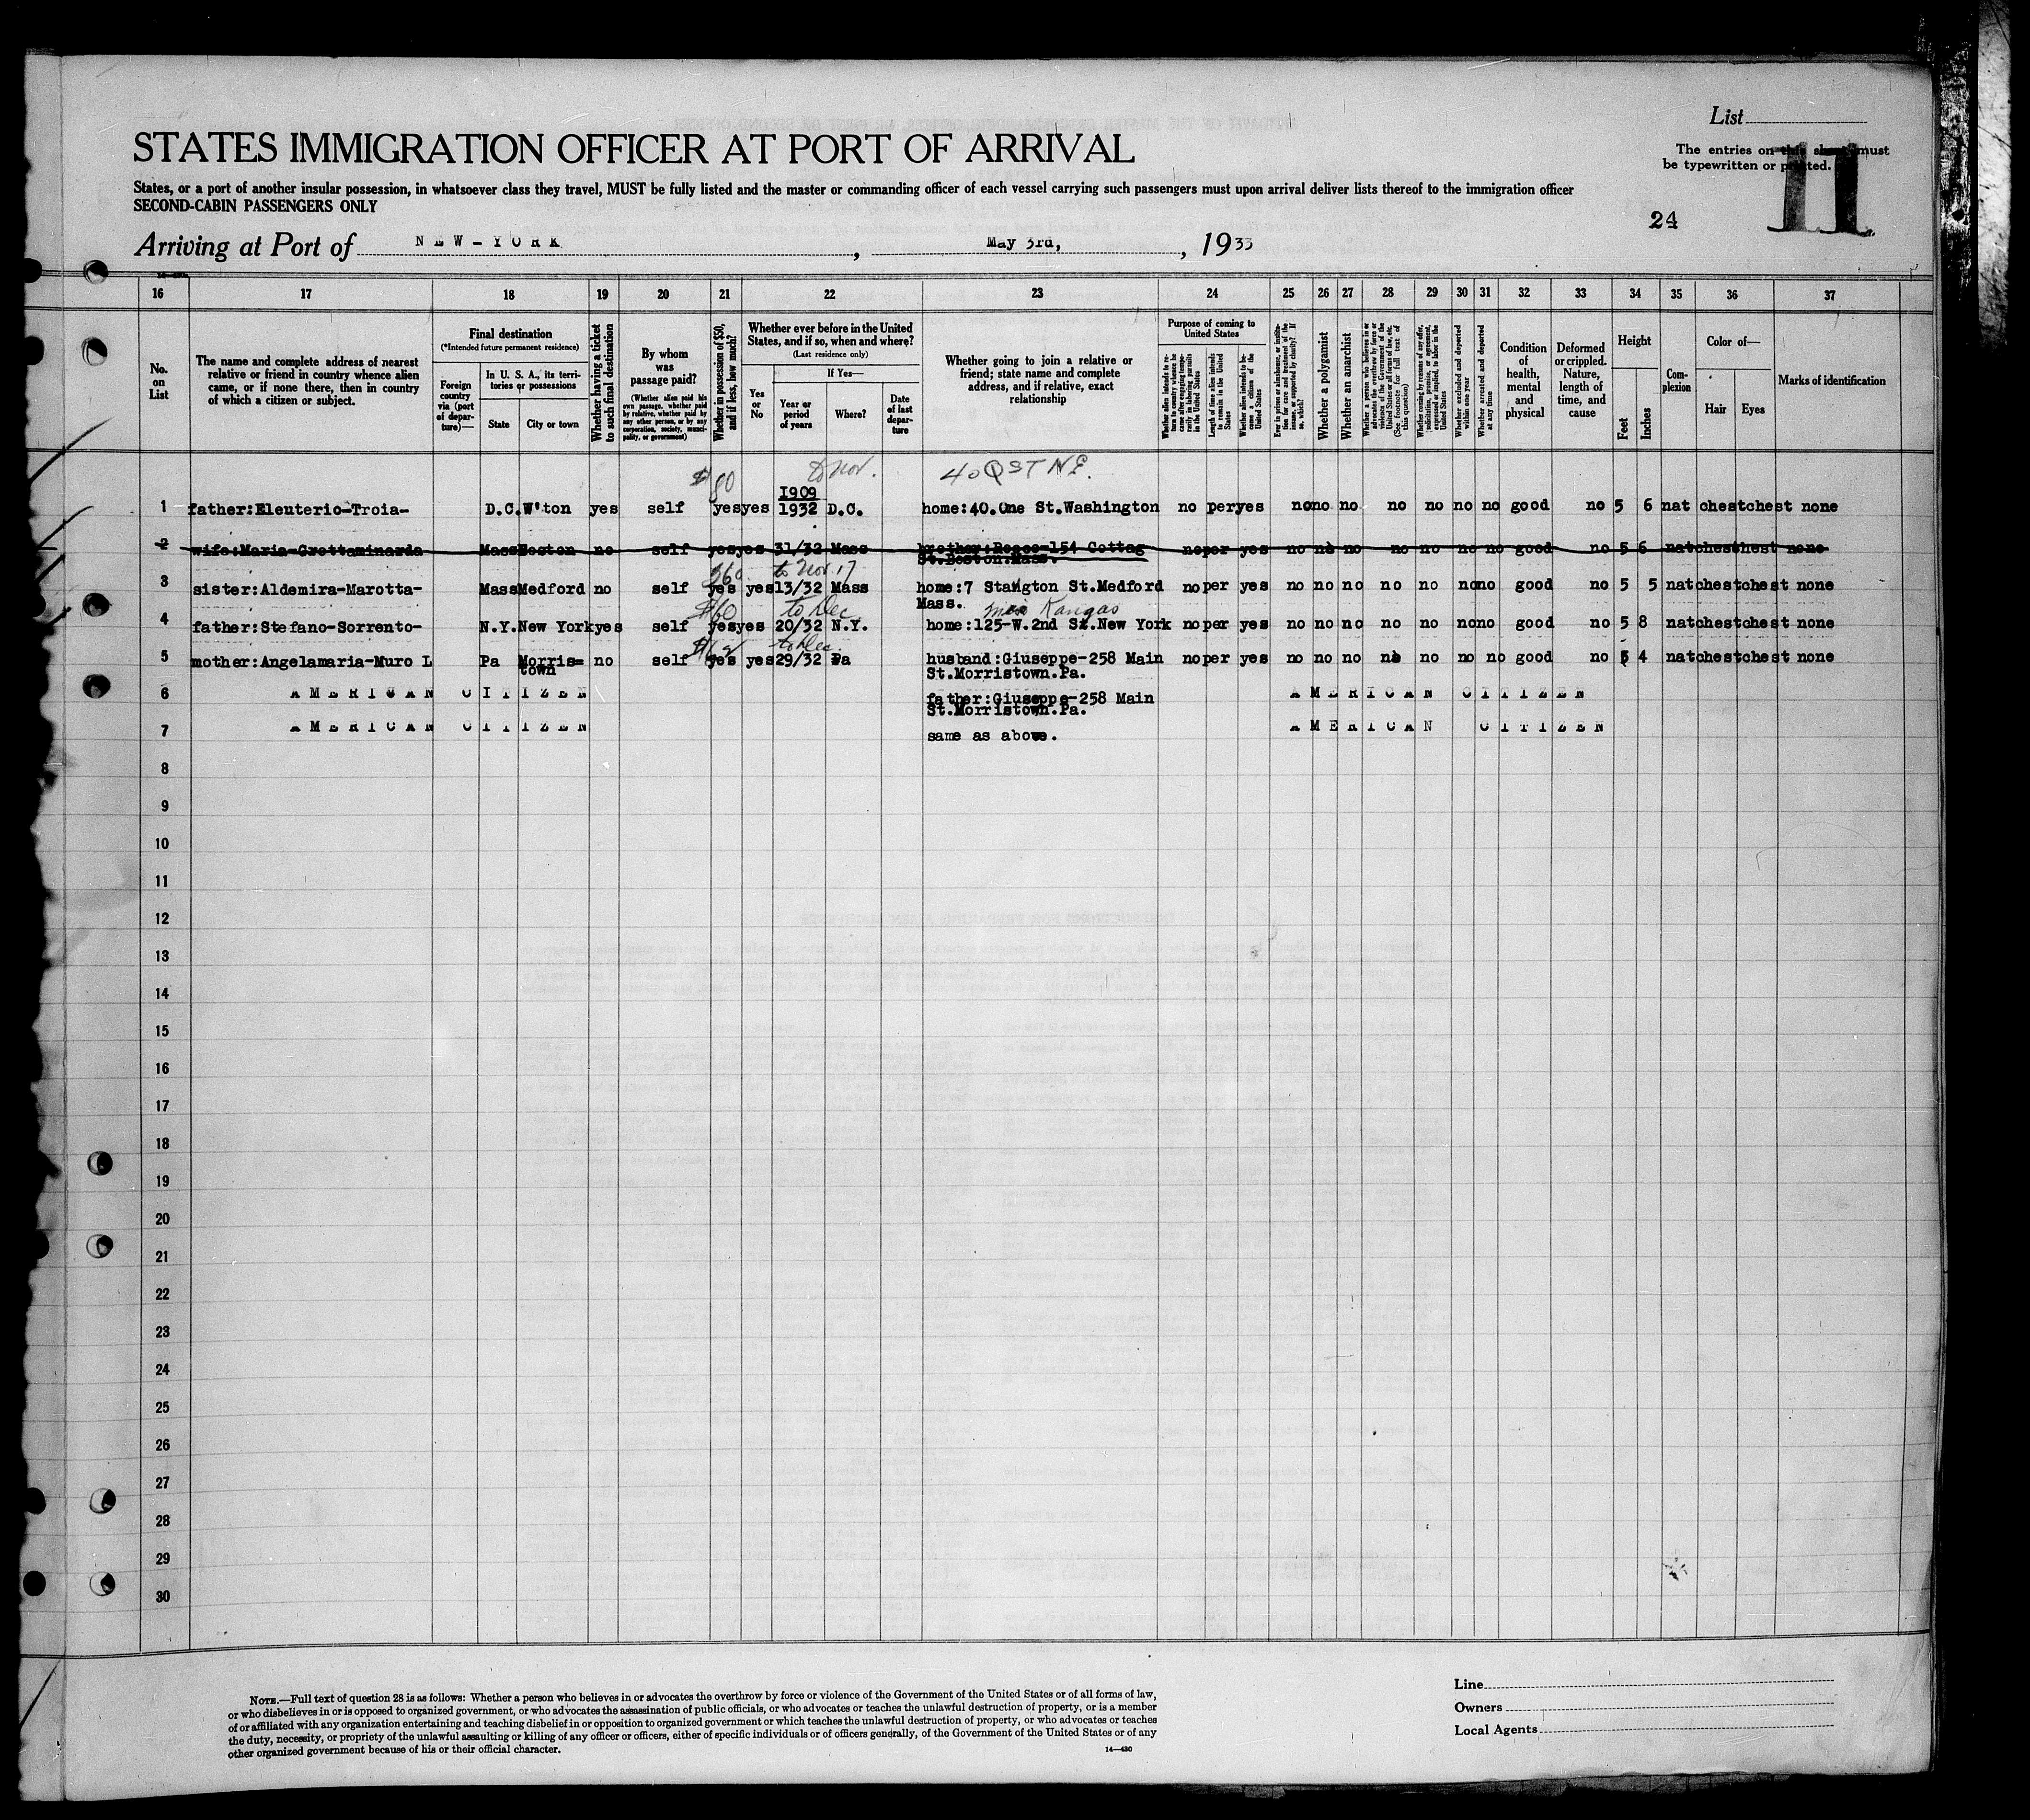 List
The entries on this sheet must
be typewritten or printed.
11
24
STATES IMMIGRATION OFFICER AT PORT OF ARRIVAL
States, or a port of another insular possession, in whatsoever class they travel, MUST be fully listed and the master or commanding officer of each vessel carrying such passengers must upon arrival deliver lists thereof to the immigration officer
SECOND-CABIN PASSENGERS ONLY
Arriving at Port of NEW-YORK, May 3rd, 1933
16 17 18 19 20 21 22 23 24 25 26 27 28 29 30 31 32 33 34 35 36 37
No. on List
The name and complete address of nearest relative or friend in country whence alien came, or if none there, then in country of which a citizen or subject.
Final destination
(*Intended future permanent residence)
Foreign country via (port of departure)—
In U. S. A., its territories or possessions
State
City or town
Whether having a ticket to such final destination
By whom was passage paid?
(Whether alien paid his own passage, whether paid by relative, whether paid by any other person, or by any corporation, society, municipality, or government)
Whether in possession of $50, and if less, how much?
Whether ever before in the United States, and if so, when and where?
(Last residence only)
Yes or No
If Yes—
Year or period of years
Where?
Date of last departure
Whether going to join a relative or friend; state name and complete address, and if relative, exact relationship
Purpose of coming to United States
Length of time alien intends to remain in the United States
Whether alien intends to become a citizen of the United States
Whether a polygamist
Whether an anarchist
Whether excluded and deported within one year
Whether arrested and deported at any time
Condition of health, mental and physical
Deformed or crippled. Nature, length of time, and cause
Height
Feet
Inches
Complexion
Color of—
Hair
Eyes
Marks of identification
$80 to Nov. 40 Q ST N.E.
1909
1 father:Eleuterio-Troia- D.C. W'ton yes self yes yes 1932 D.C. home:40.One St.Washington no per yes no no no no no no no good no 5 6 nat chest chest none
2 wife:Maria-Grottaminarda Mass Boston no self yes yes 31/32 Mass brother:Rocco-154 Cottag no per yes no no no no no no no good no 5 6 nat chest chest none
St.Boston.Mass.
$60 to Nov 17
3 sister:Aldemira-Marotta- Mass Medford no self yes yes 13/32 Mass home:7 Stangton St.Medford no per yes no no no no no no no good no 5 5 nat chest chest none
Mass.
$60 to Dec
4 father:Stefano-Sorrento- N.Y. New York yes self yes yes 20/32 N.Y. home:125-W.2nd St.New York no per yes no no no no no no no good no 5 8 nat chest chest none
to Dec
5 mother:Angelamaria-Muro L Pa Morris= no self yes yes 29/32 Pa husband:Giuseppe-258 Main no per yes no no no no no no no good no 5 4 nat chest chest none
town St.Morristown.Pa.
6 AMERICAN CITIZEN father:Giuseppe-258 Main AMERICAN CITIZEN
St.Morristown.Pa.
7 AMERICAN CITIZEN same as above. AMERICAN CITIZEN
8
9
10
11
12
13
14
15
16
17
18
19
20
21
22
23
24
25
26
27
28
29
30
NOTE.—Full text of question 28 is as follows: Whether a person who believes in or advocates the overthrow by force or violence of the Government of the United States or of all forms of law,
or who disbelieves in or is opposed to organized government, or who advocates the assassination of public officials, or who advocates or teaches the unlawful destruction of property, or is a member
of or affiliated with any organization entertaining and teaching disbelief in or opposition to organized government or which teaches the unlawful destruction of property, or who advocates or teaches
the duty, necessity, or propriety of the unlawful assaulting or killing of any officer or officers, either of specific individuals or of officers generally, of the Government of the United States or of any
other organized government because of his or their official character.
14—430
Line
Owners
Local Agents